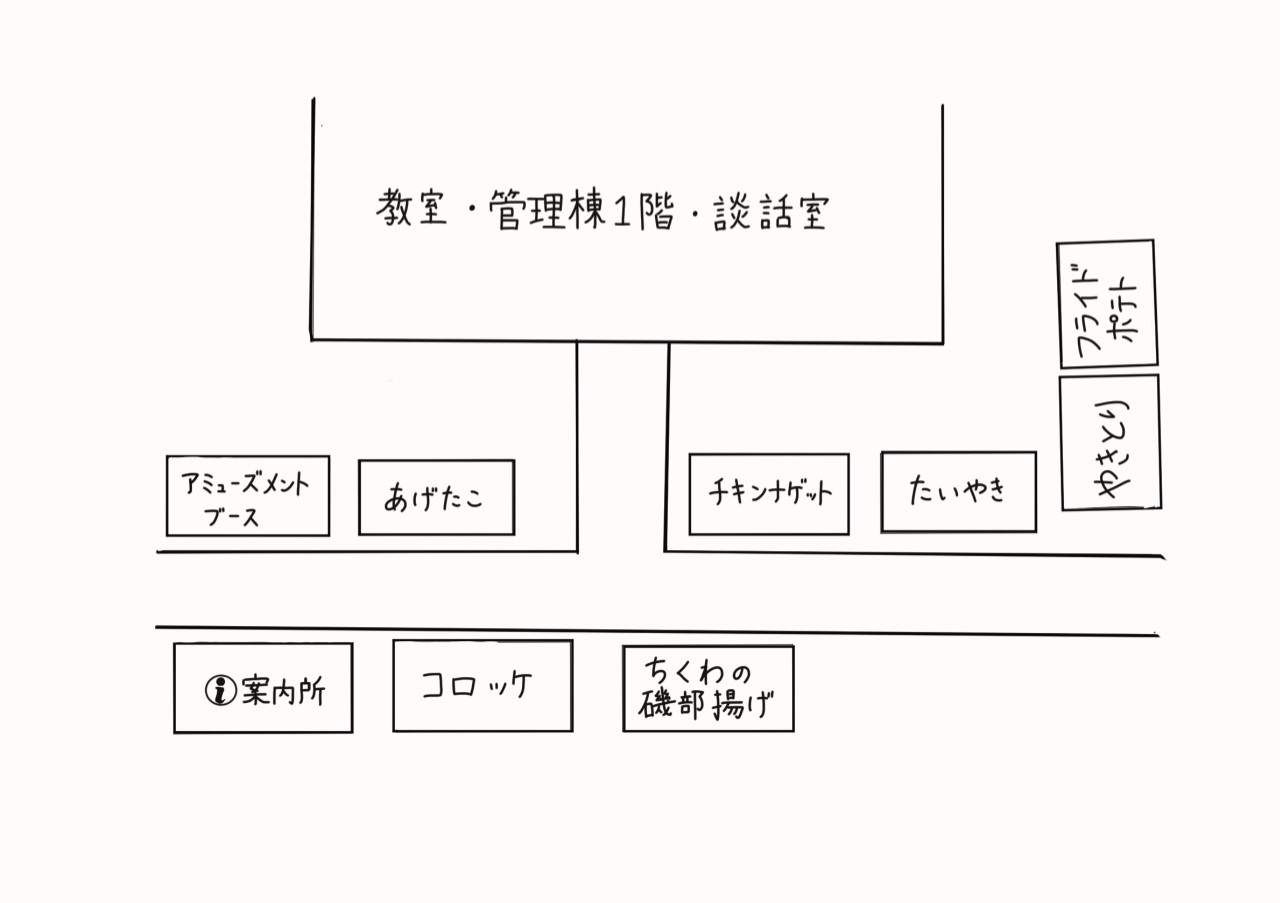 教室・管理棟1階・談話室
フライド
ポテト
やきとり
アミューズメント
ブース
あげたこ
チキンナゲット
たいやき
i案内所
コロッケ
ちくわの
磯部揚げ